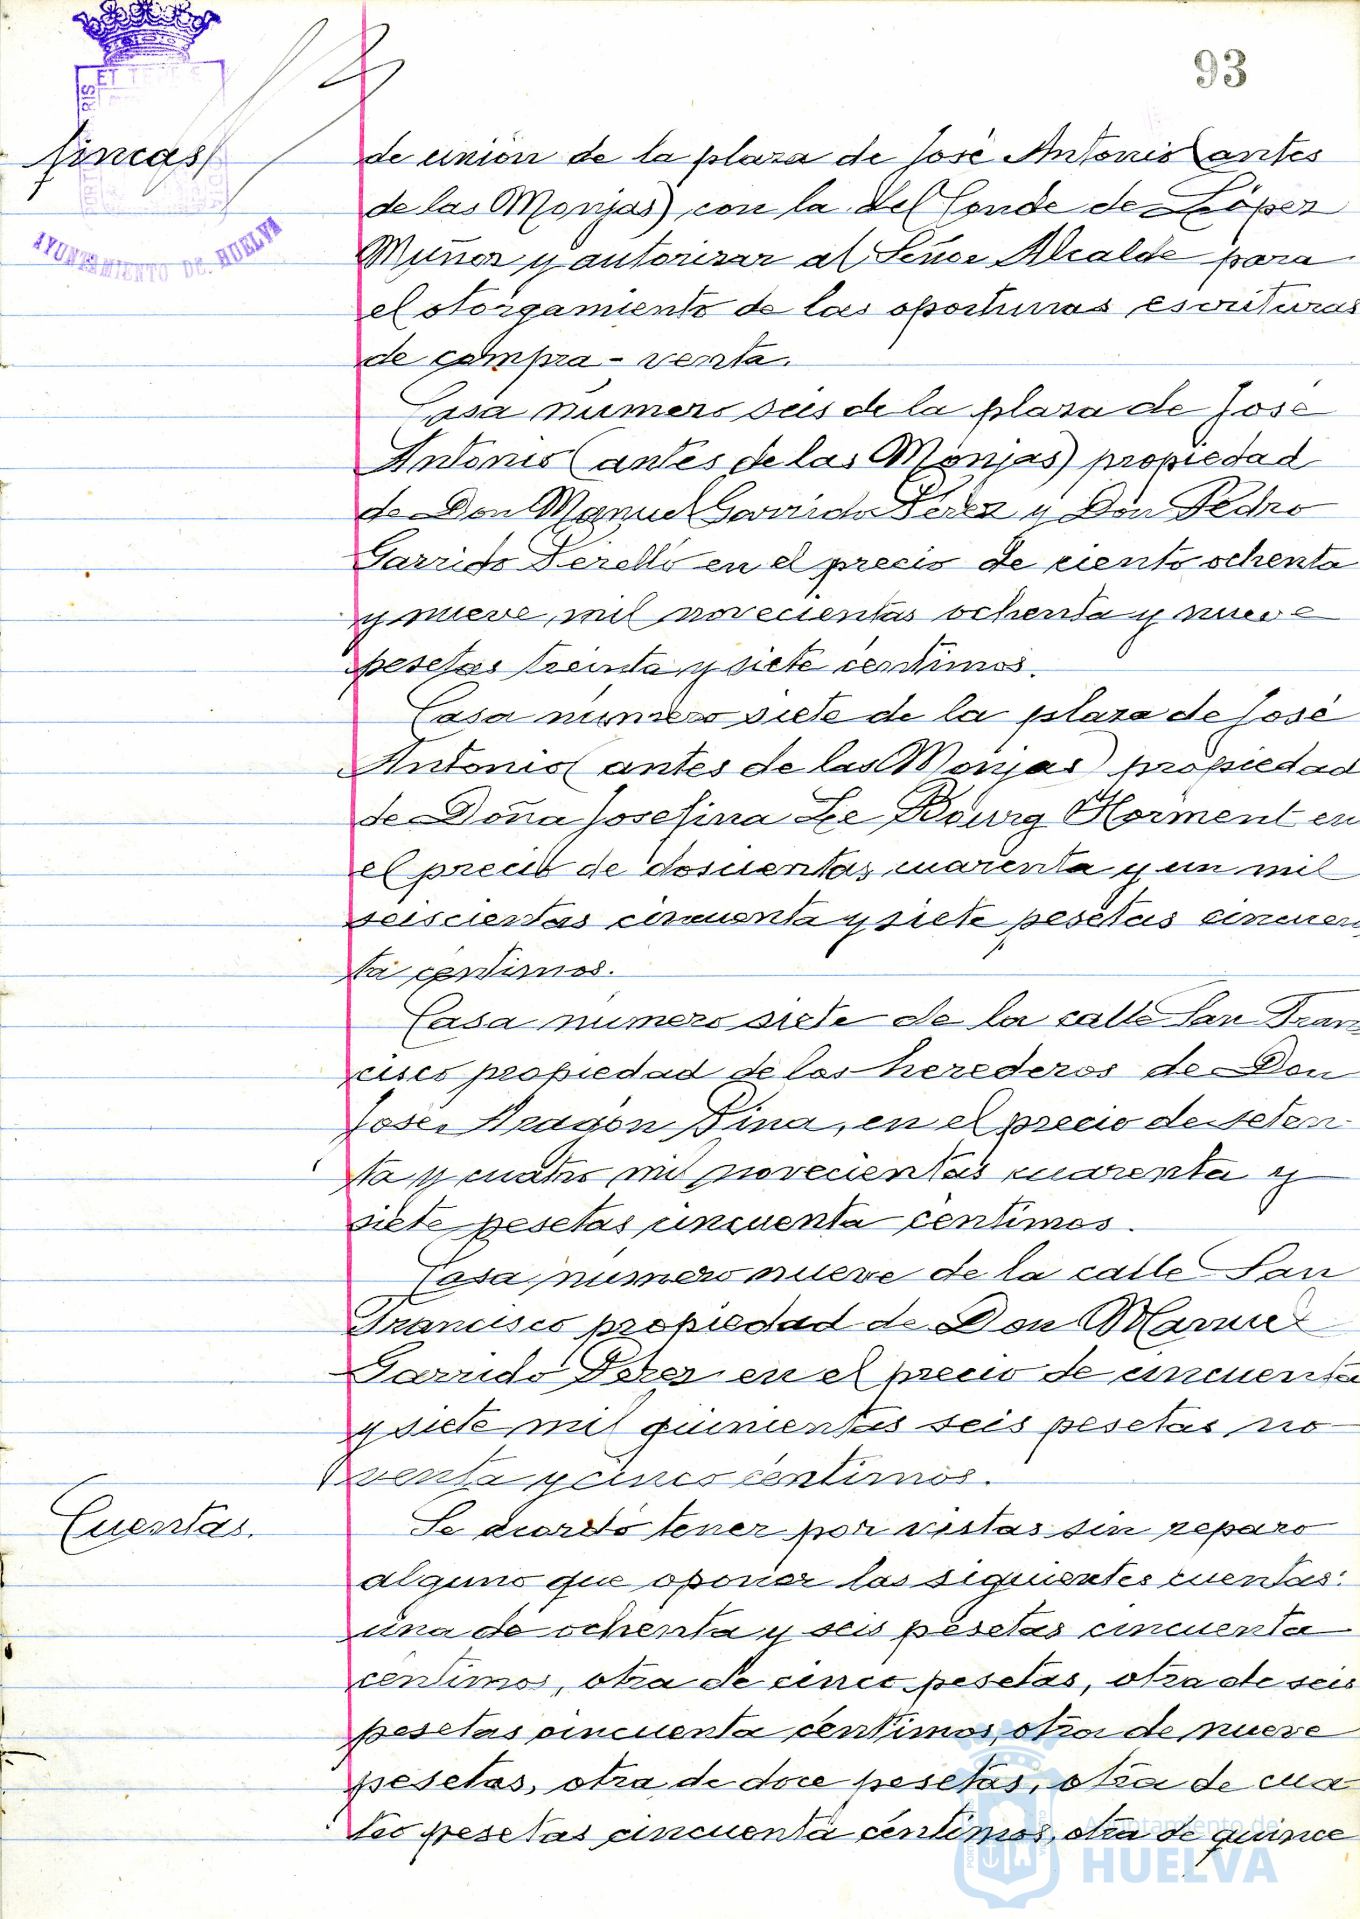 93
ET TERRE
AYUNTAMIENTO DE HUELVA
fincas
de unión de la plaza de José Antonio (antes
de las Monjas) con la del Conde de López
Muñoz y autorizar al Señor Alcalde para
el otorgamiento de las oportunas escrituras
de compra-venta.
Casa número seis de la plaza de José
Antonio (antes de las Monjas) propiedad
de Don Manuel Garrido Pérez y Don Pedro
Garrido Perelló en el precio de ciento ochenta
y nueve mil novecientas ochenta y nueve
pesetas treinta y siete céntimos.
Casa número siete de la plaza de José
Antonio (antes de las Monjas) propiedad
de Doña Josefina Le Bourg Horment en
el precio de doscientas cuarenta y un mil
seiscientas cincuenta y siete pesetas cincuen
ta céntimos.
Casa número siete de la calle San Fran
cisco propiedad de los herederos de Don
José Aragón Pina, en el precio de seten-
ta y cuatro mil novecientas cuarenta y
siete pesetas cincuenta céntimos.
Casa número nueve de la calle San
Francisco propiedad de Don Manuel
Garrido Perez en el precio de cincuenta
y siete mil quinientas seis pesetas no-
venta y cinco céntimos.
Cuentas.
Se acordó tener por vistas sin reparo
alguno que oponer las siguientes cuentas:
una de ochenta y seis pesetas cincuenta
céntimos, otra de cinco pesetas, otra de seis
pesetas cincuenta céntimos, otra de nueve
pesetas, otra de doce pesetas, otra de cua-
tro pesetas cincuenta céntimos, otra de quince
Ayuntamiento de
HUELVA